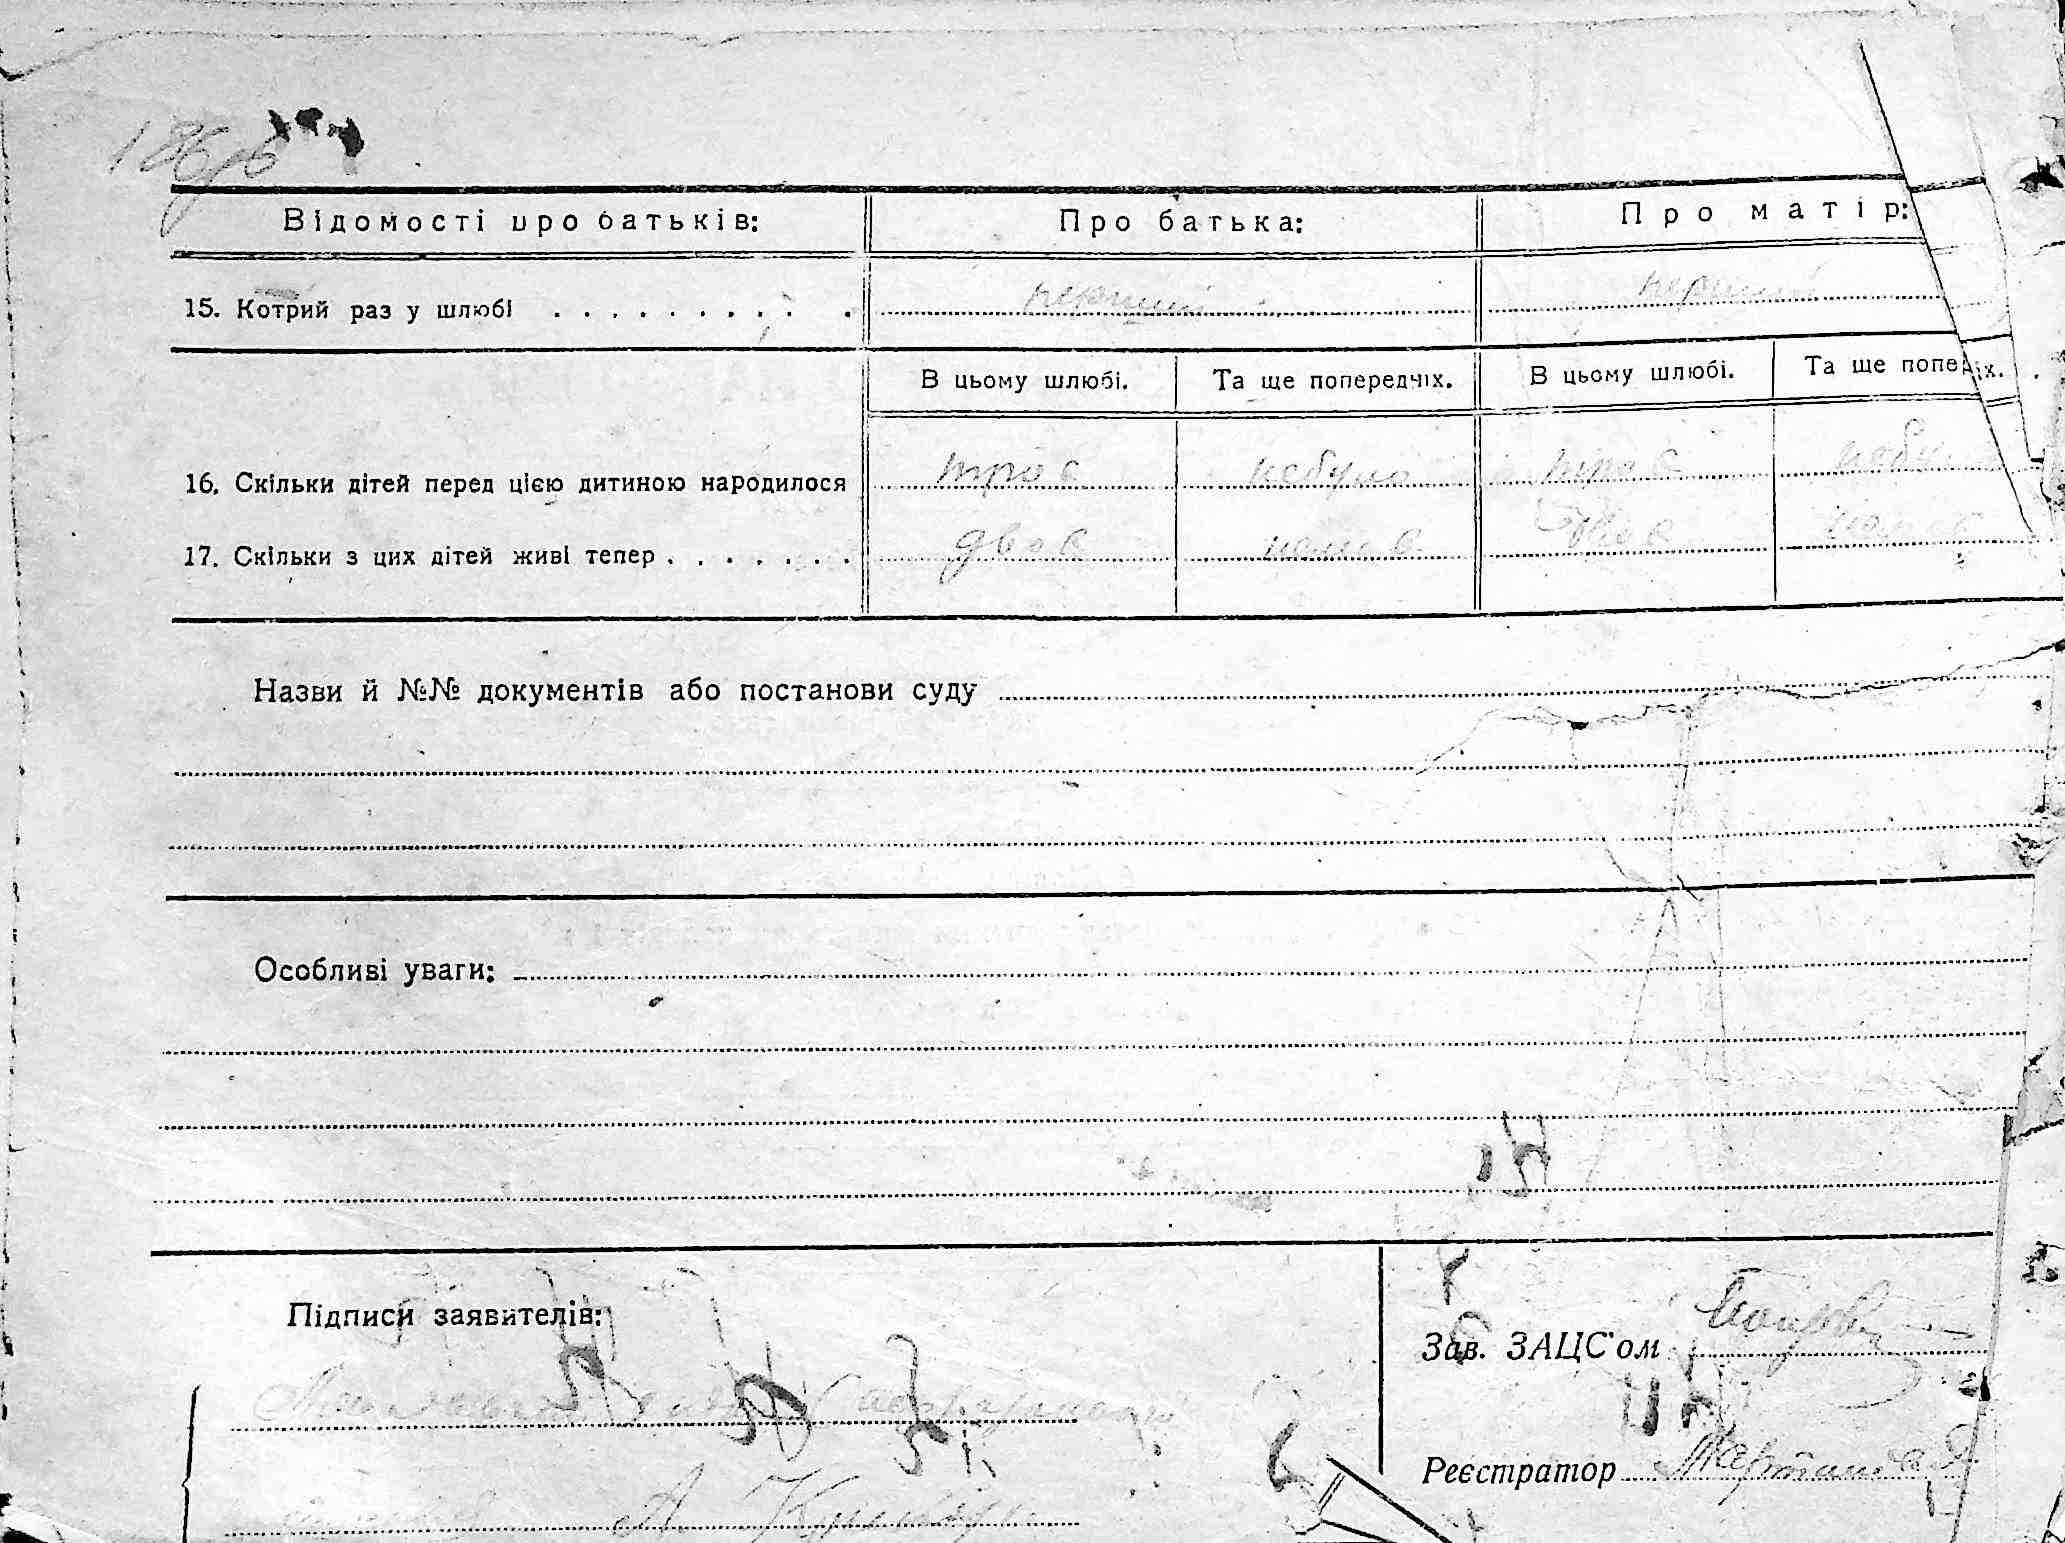 Відомості про батьків: Про батька: Про матір:
15. Котрий раз у шлюбі . . . . . . . . . . перший перший
В цьому шлюбі. Та ще попередніх. В цьому шлюбі. Та ще попе іх.
16. Скільки дітей перед цією дитиною народилося троє небуло троє небу
17. Скільки з цих дітей живі тепер . . . . . . . двоє немає двоє немає
Назви й №№ документів або постанови суду
Особливі уваги:
Підписи заявителів:
Зав. ЗАЦС'ом
Реєстратор
А.